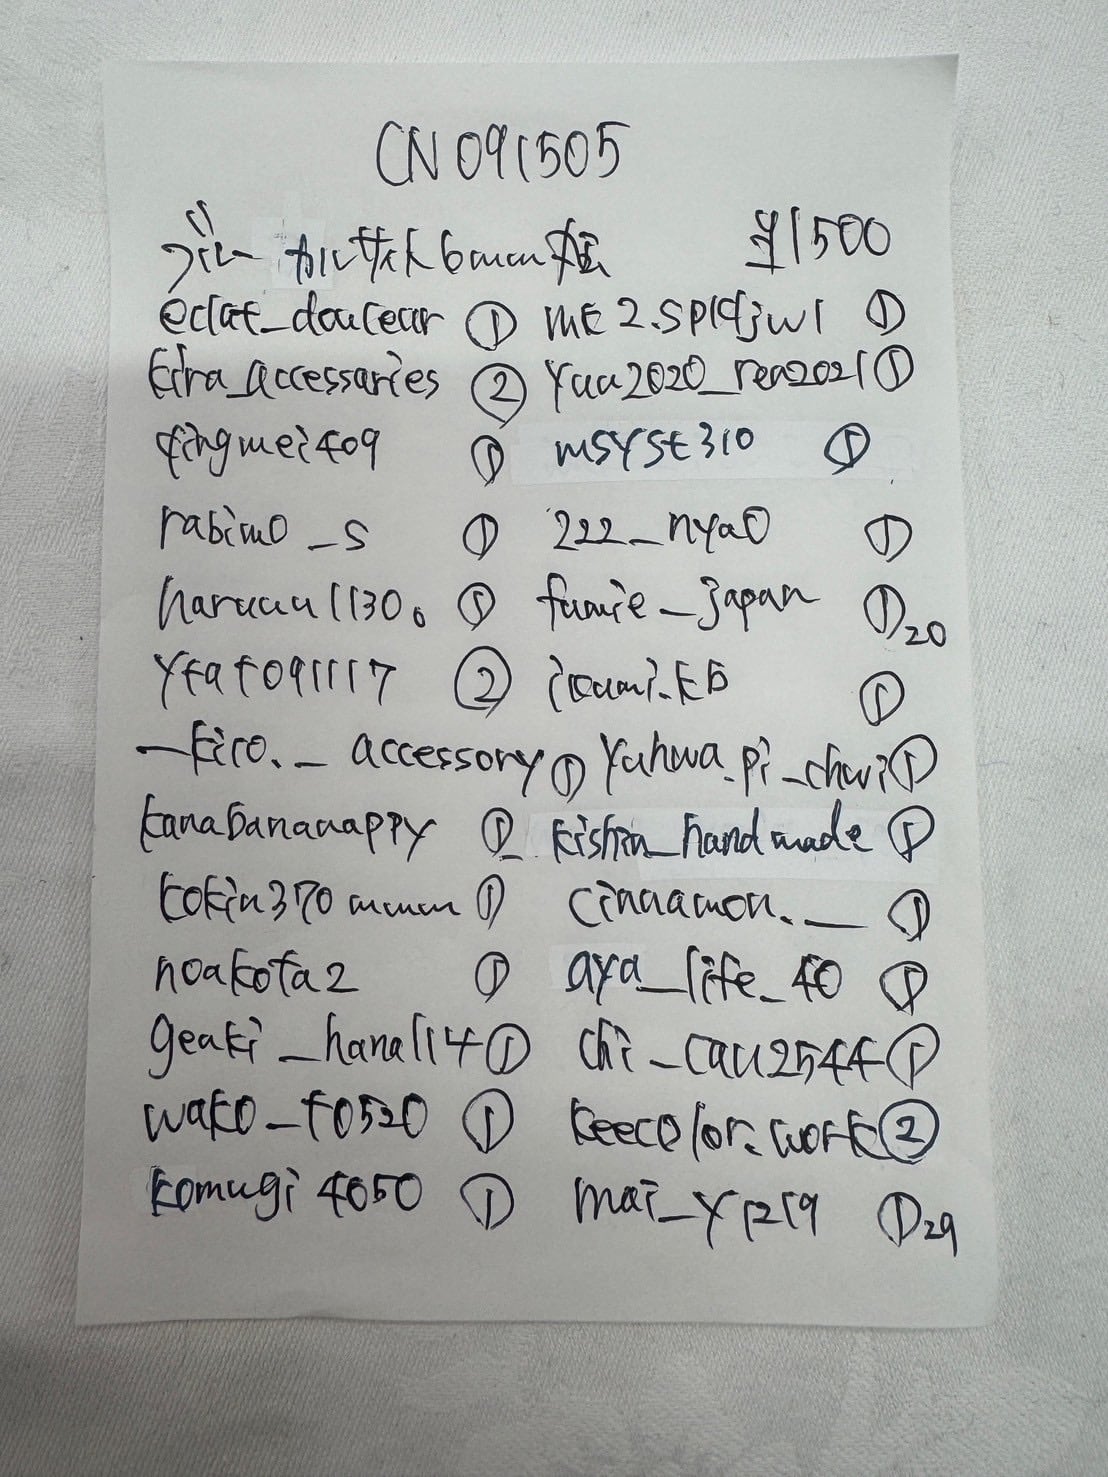 CN091505
ブルーカルサイト6mm玉 ¥1500
eclat_douceur ① mk2.splqjwl ①
kira_accessaries ② yuu2020_rea2021 ①
qingmei409 ① msyst310 ①
rabimo_s ① 222_nya0 ①
haruuu1130。 ① fumie_japan ① 20
yfat091117 ② izumi.kb ①
_kico._accessory ① yuhwa.pi_chwi ①
kanabananappy ① kishin_handmade ①
kokin370mmm ① cinnamon.__ ①
noakota2 ① aya_life_40 ①
geaki_hana1114 ① chi_cau2544 ①
wako_t0520 ① keecolor.work ②
komugi4050 ① mai_y1219 ① 29